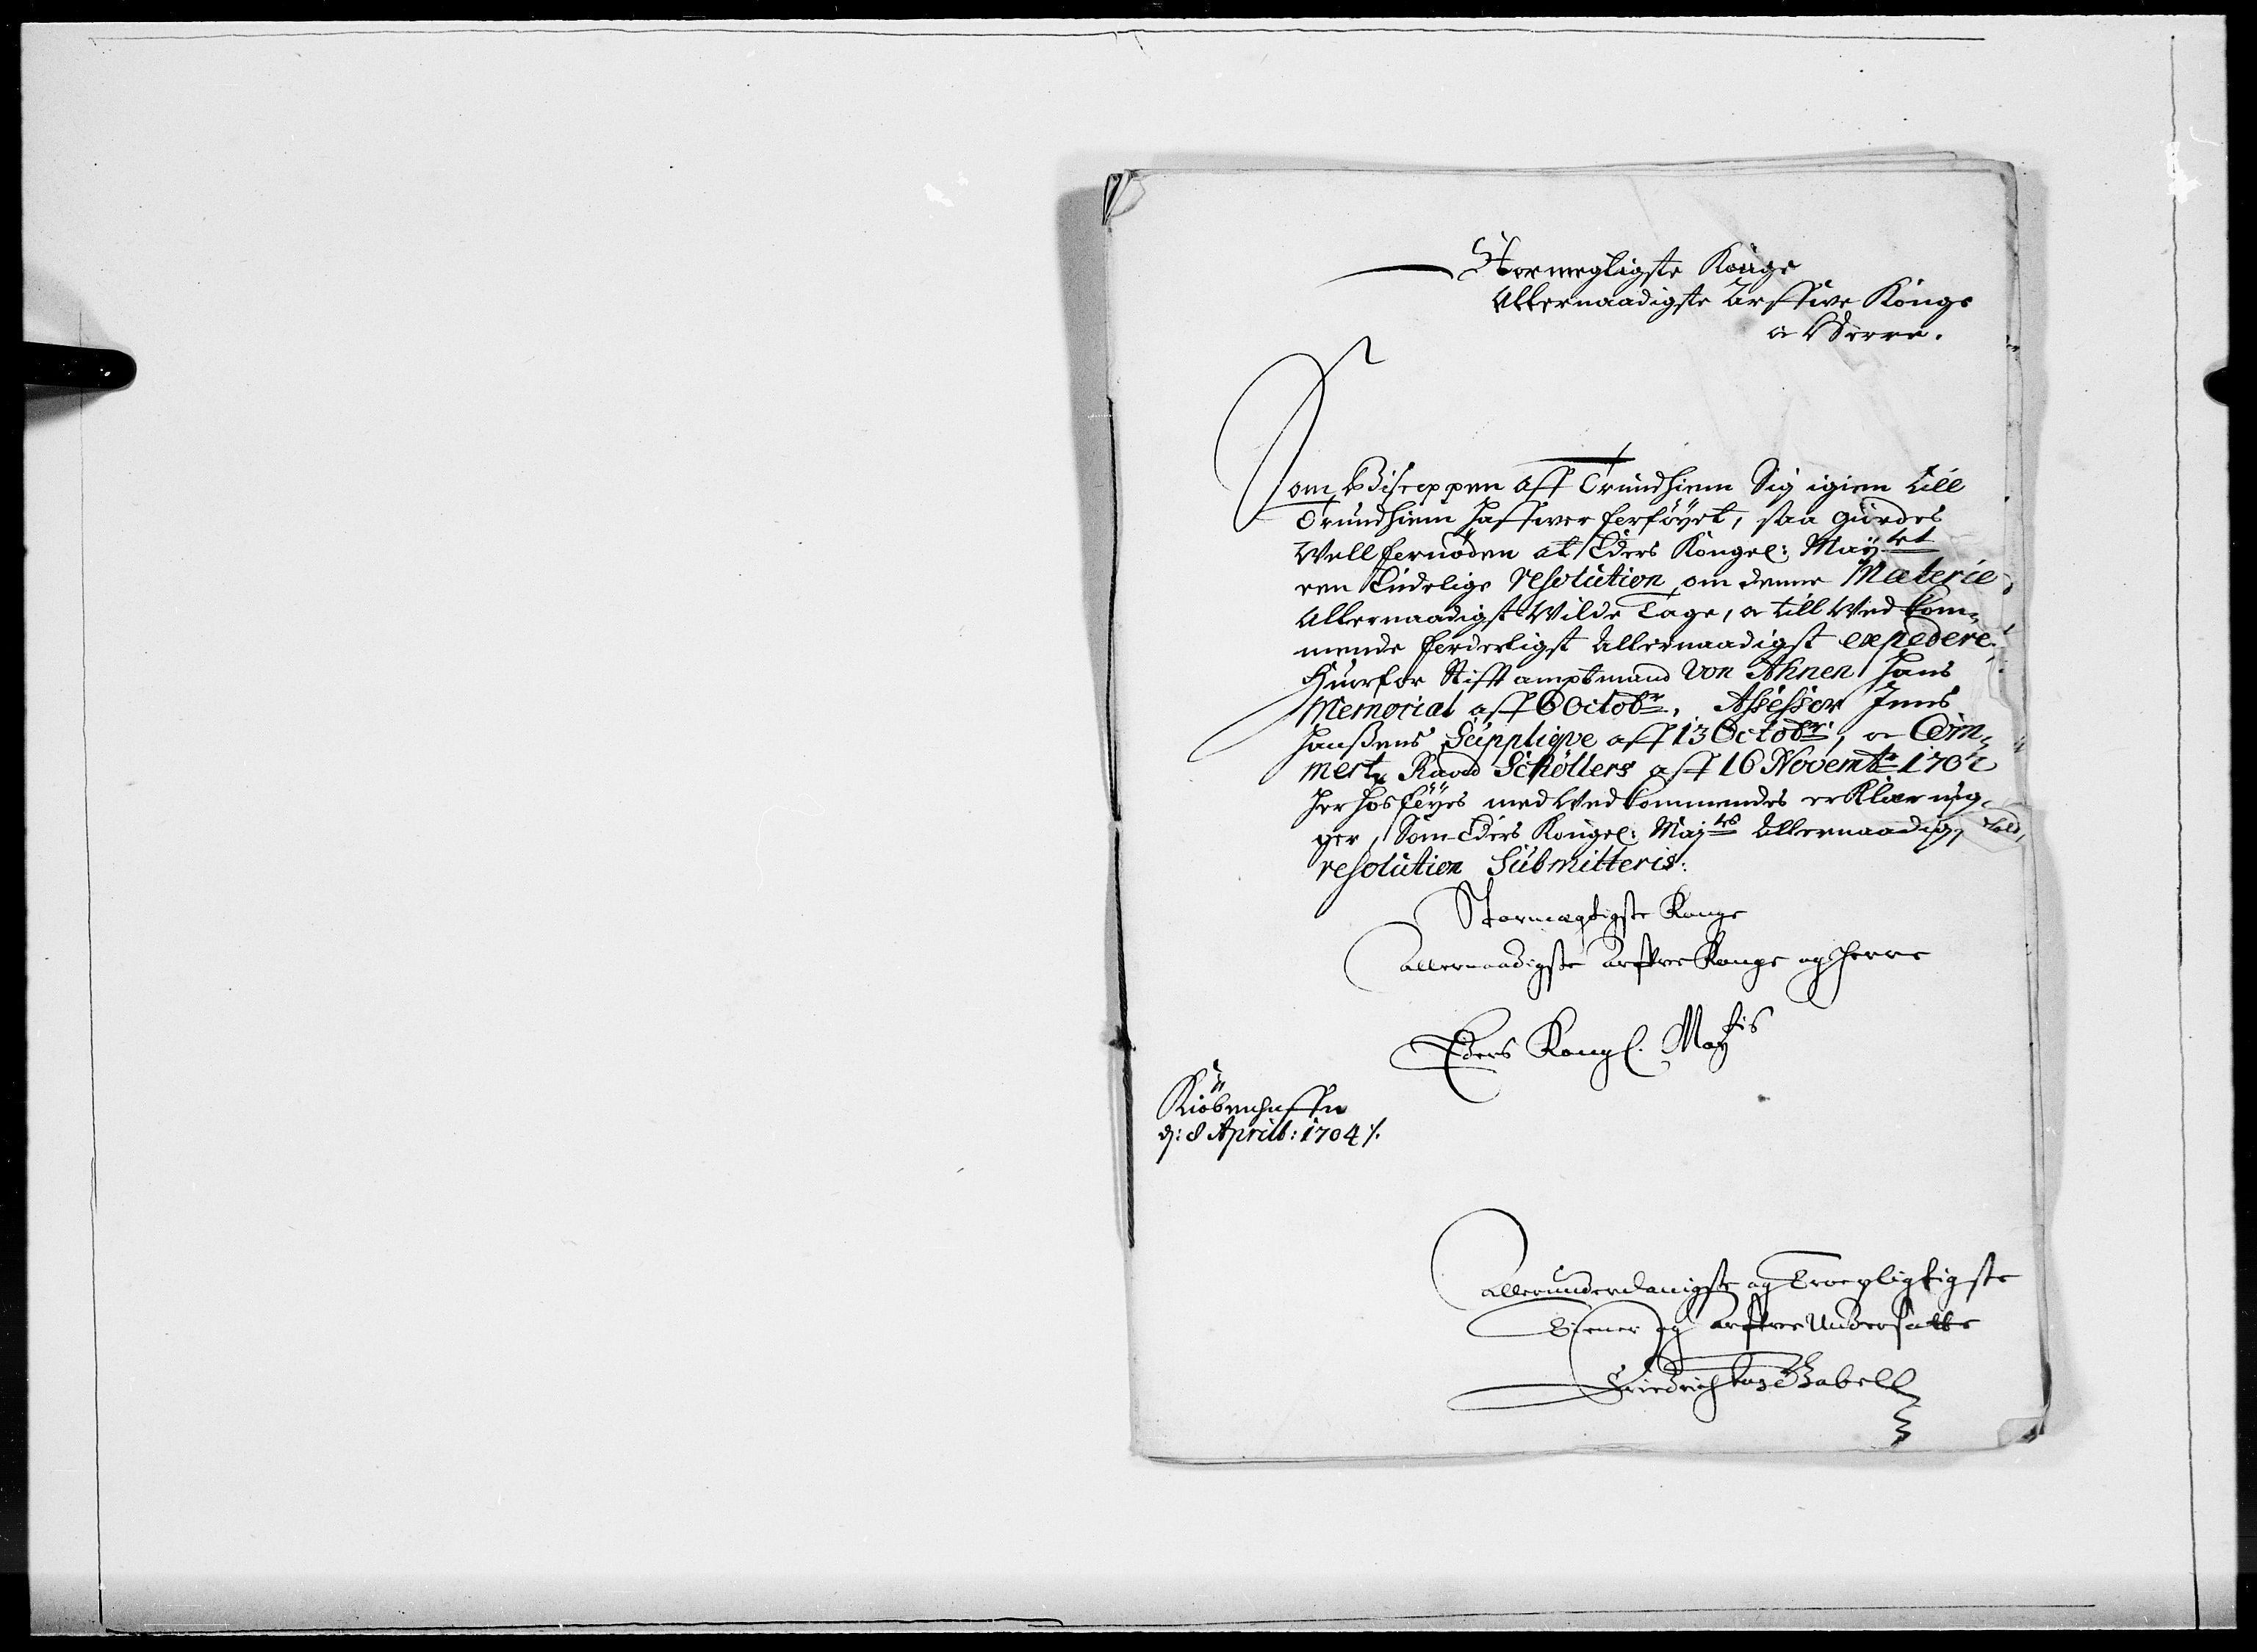 Stormegtigste Konge
Allernaadigste Arffwe Konge
o Herre.
Som Biscoppen aff Trundhiem Sig igien till
Trundhiem haffwer forføyet, saa giordes
Well fornøden at Eders Kongel: May.tet
een Endelige resolution om denne Materie
Allernaadigst Wilde Tage, o till Wedkom¬
mende forderligst Allernaadigst expedere.
Huorfor Stifftamptmand Von Ahnen hans
Memorial aff 6 Octobr, Assessor Jens
Hanßens Supplique aff 13 Octobr, o Com¬
mertz Raad Schøllers aff 16 Novembr 1702
her hos føyes med Wedkommendes erklæring¬
ger, Som Eders Kongel: Maj.ts Allernaadig,
resolution Submitteris:
Stormægtigste Konge
allernaadigste arfve Konge og Herre
Eders Kongl. Maytis
Kiøbenhaffn
d: 8 Aprill: 1704 ⁒
allerunderdanigste og troepligtigste
tiener og arfve Undersatte
Friedrich Gabell